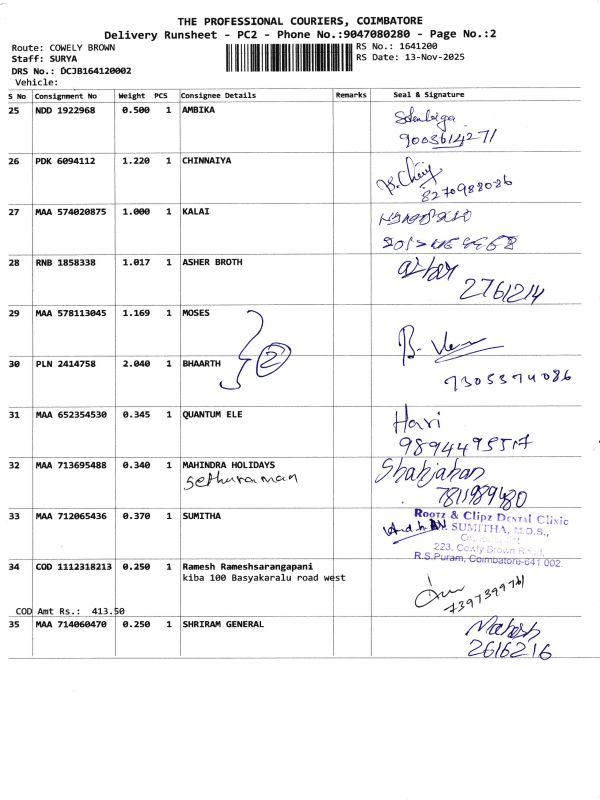 THE PROFESSIONAL COURIERS, COIMBATORE
Delivery Runsheet - PC2 - Phone No.:9047080280 - Page No.:2
Route: COWELY BROWN
RS No.: 1641200
Staff: SURYA
RS Date: 13-Nov-2025
DRS No.: DCJB164120002
Vehicle:
S No Consignment No Weight PCS Consignee Details Remarks Seal & Signature
25 NDD 1922968 0.500 1 AMBIKA
9003614271
26 PDK 6094112 1.220 1 CHINNAIYA
8270988086
27 MAA 574020875 1.000 1 KALAI
28 RNB 1858338 1.017 1 ASHER BROTH
2761214
29 MAA 578113045 1.169 1 MOSES
2
30 PLN 2414758 2.040 1 BHAARTH
7305374086
31 MAA 652354530 0.345 1 QUANTUM ELE
Hari
32 MAA 713695488 0.340 1 MAHINDRA HOLIDAYS
Sethuraman
Shahjahan
7811989480
33 MAA 712065436 0.370 1 SUMITHA
Rootz & Clipz Dental Clinic
SUMITHA, M.D.S.,
223, Cowly Brown Road,
R.S.Puram, Coimbatore-641 002.
34 COD 1112318213 0.250 1 Ramesh Rameshsarangapani
kiba 100 Basyakaralu road west
COD Amt Rs.: 413.50
35 MAA 714060470 0.250 1 SHRIRAM GENERAL
Mahesh
2616216